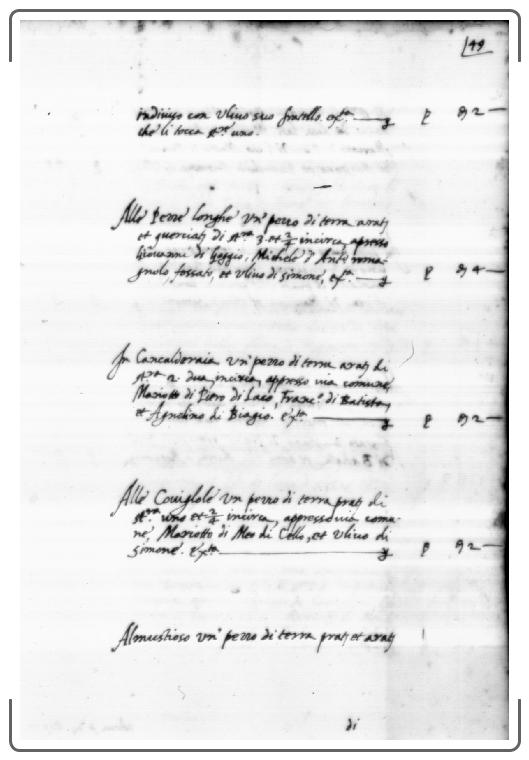 49
indiviso con Ulivo suo fratello. etc.
che li tocca st.re uno.
Alle Perre longhe Un' pezzo di terra arat.
et querciat. di st.ra 3. et 2/4 incirca, apresso
Giovanni di Goggio, Michele d'Ant.
gnolo, fossato, et Ulivo di simone, etc. p 4
In Cancalderaia Un' pezzo di terra arat. di
st.ra 2. dua incirca, appresso via comune,
Mariotto di Piero di Laco, Franc.o di Batista,
et Agnolino di Biagio. etc. p 2
Alle Covigliole Un pezzo di terra prat. di
st.ra uno et 2/4 incirca, appresso via comu-
ne, Mariotto di Meo di Cello, et Ulivo di
simone. etc. p 2
Almustioso Un' pezzo di terra prat. et arat.
di